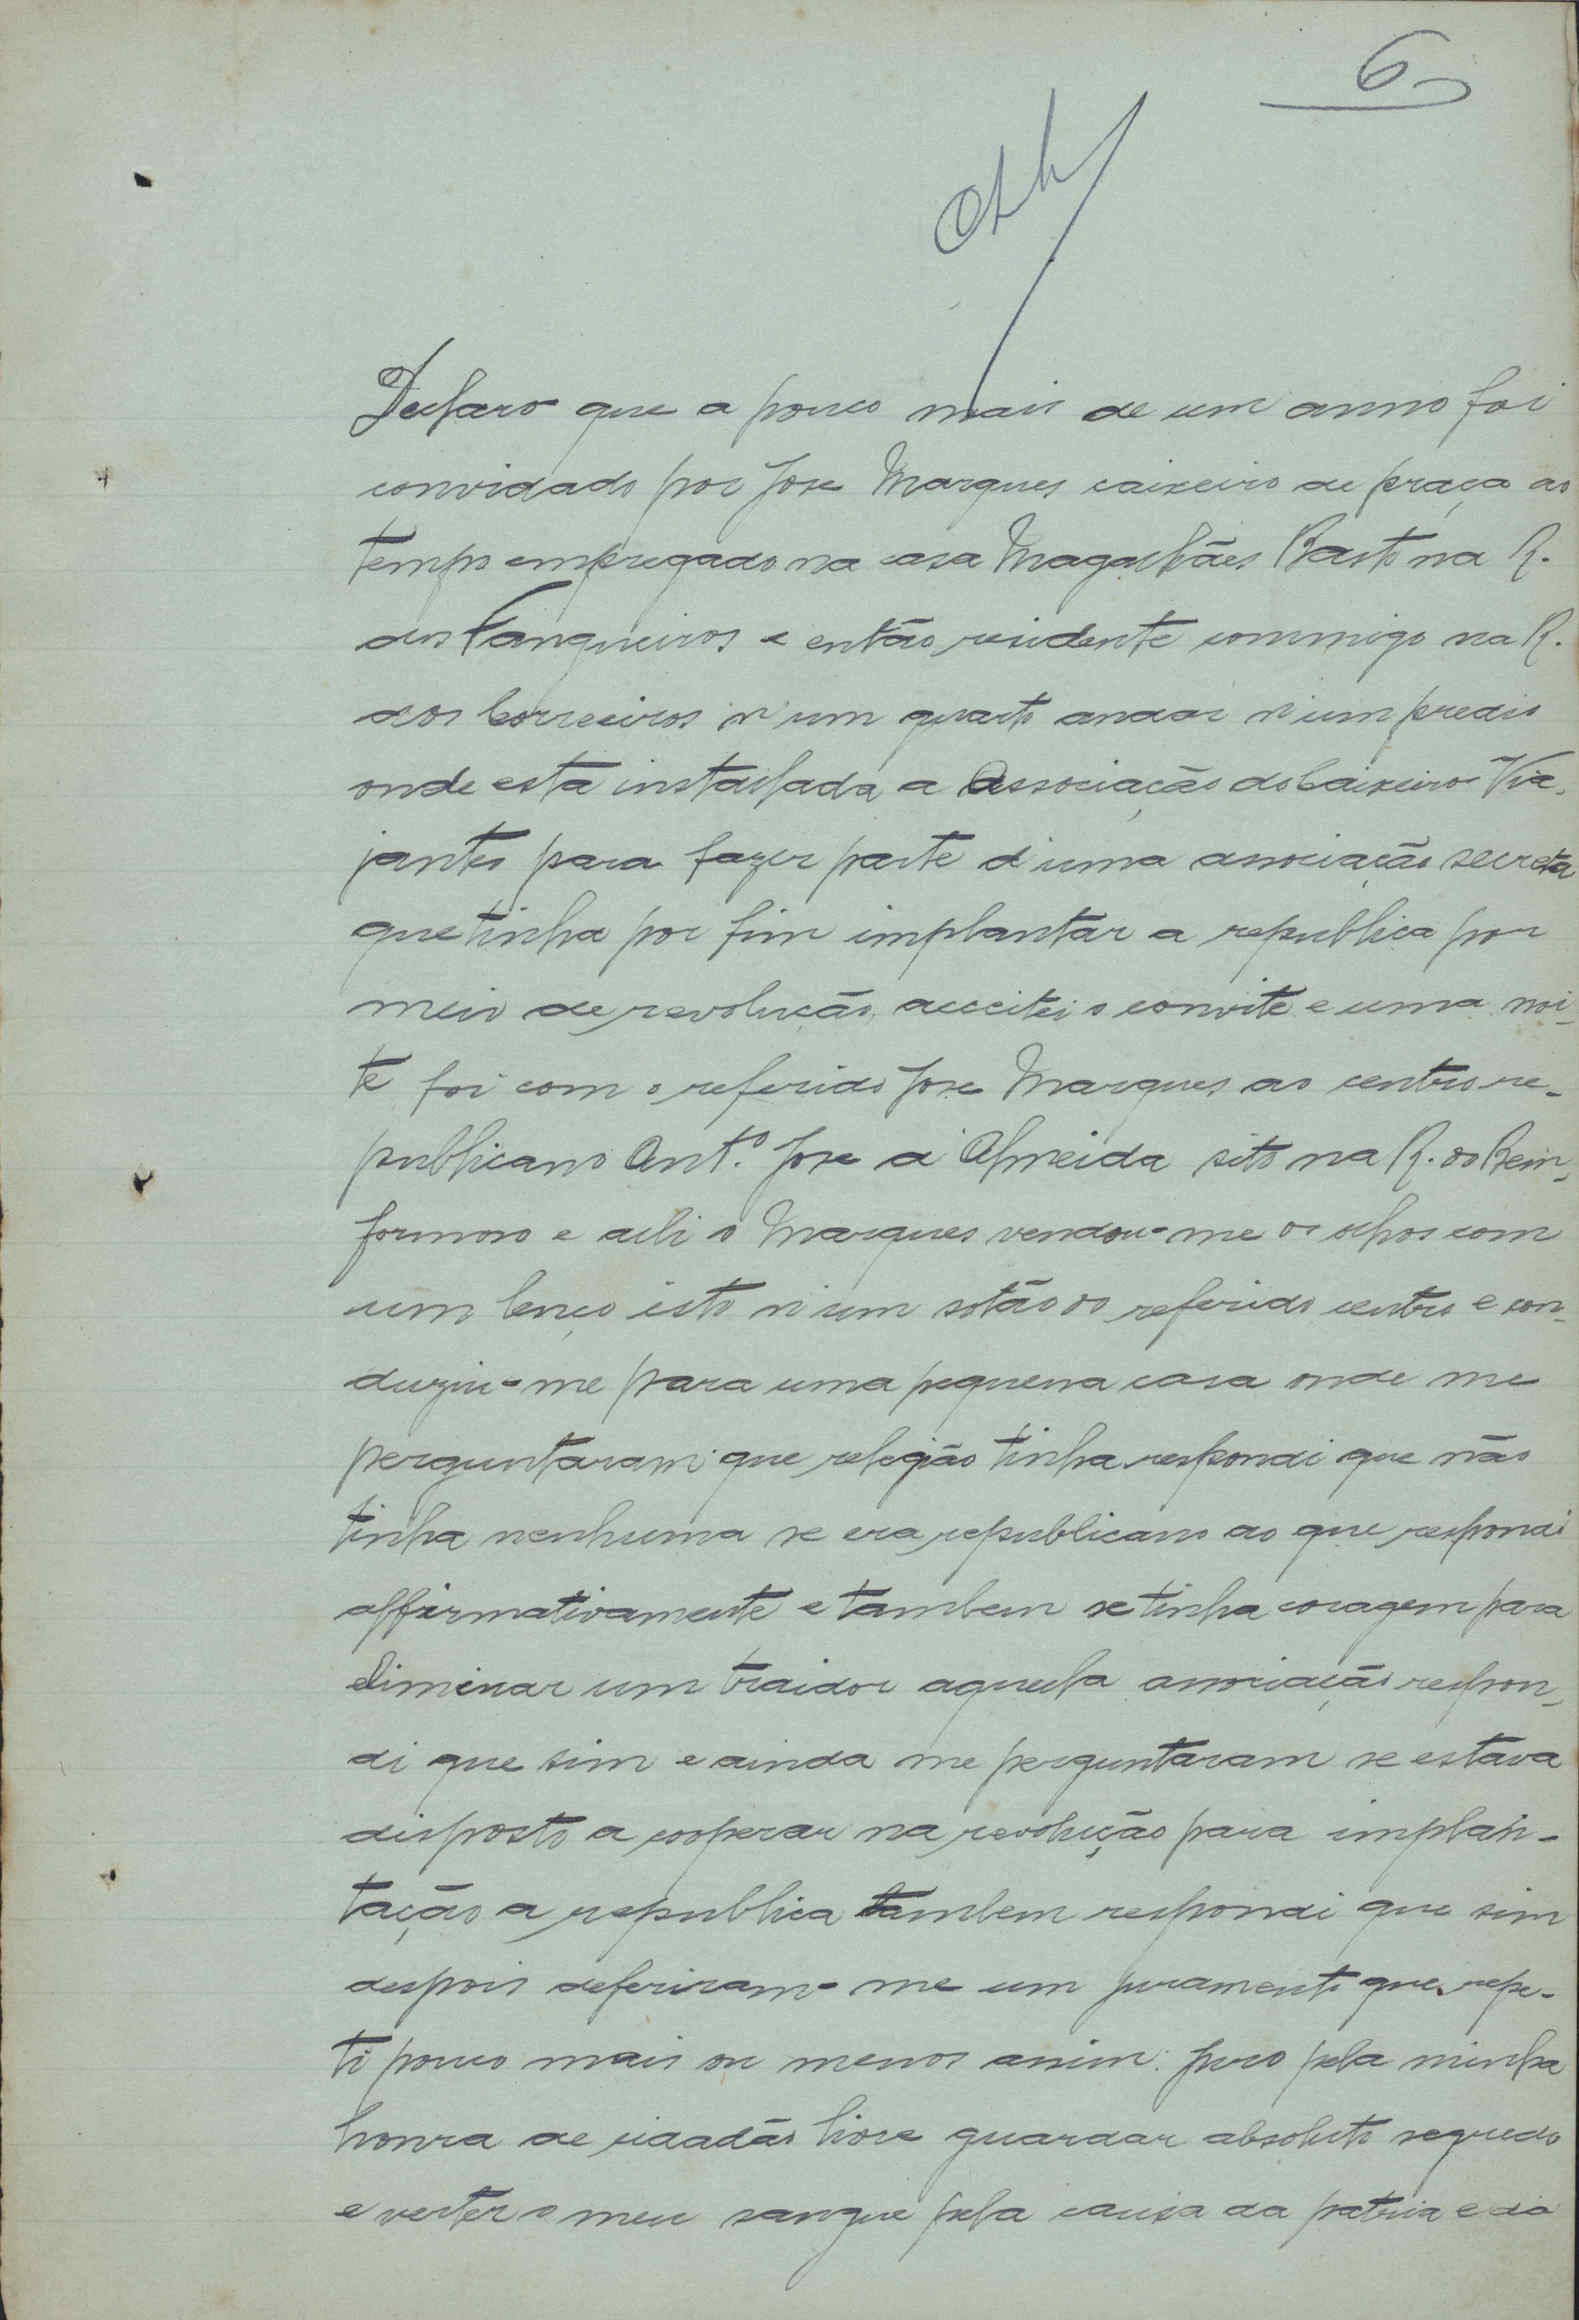 6
Declaro que a pouco mais de um anno foi
convidado por Jose Marques caixeiro de praça ao
tempo empregado na casa Magalhães Basto na R.
dos Fanqueiros e então residente commigo na R.
dos Correeiros n'um quarto andar n'um predio
onde esta installada a Associação do Caixeiros Via-
jantes para fazer parte d'uma associação secreta
que tinha por fim implantar a republica por
meio de revolução, acceitei o convite e uma noi-
te foi com o referido Jose Marques ao centro re-
publicano Ant.º Jose d'Almeida sito na R. do Bem-
formoso e alli o Marques vendou-me os olhos com
um lenço isto n'um sotão do referido centro e con-
duziu-me para uma pequena casa onde me
perguntaram que religião tinha respondi que não
tinha nenhuma se era republicano ao que respondi
affirmativamente e tambem se tinha coragem para
eliminar um traidor aquella associação respon-
di que sim e ainda me perguntaram se estava
disposto a cooperar na revolução para implan-
tação a republica tambem respondi que sim
despois deferiram-me um juramento que repe-
ti pouco mais ou menos assim: Juro pela minha
honra de cidadão livre guardar absoluto segredo
e verter o meu sangue pela causa da patria e da